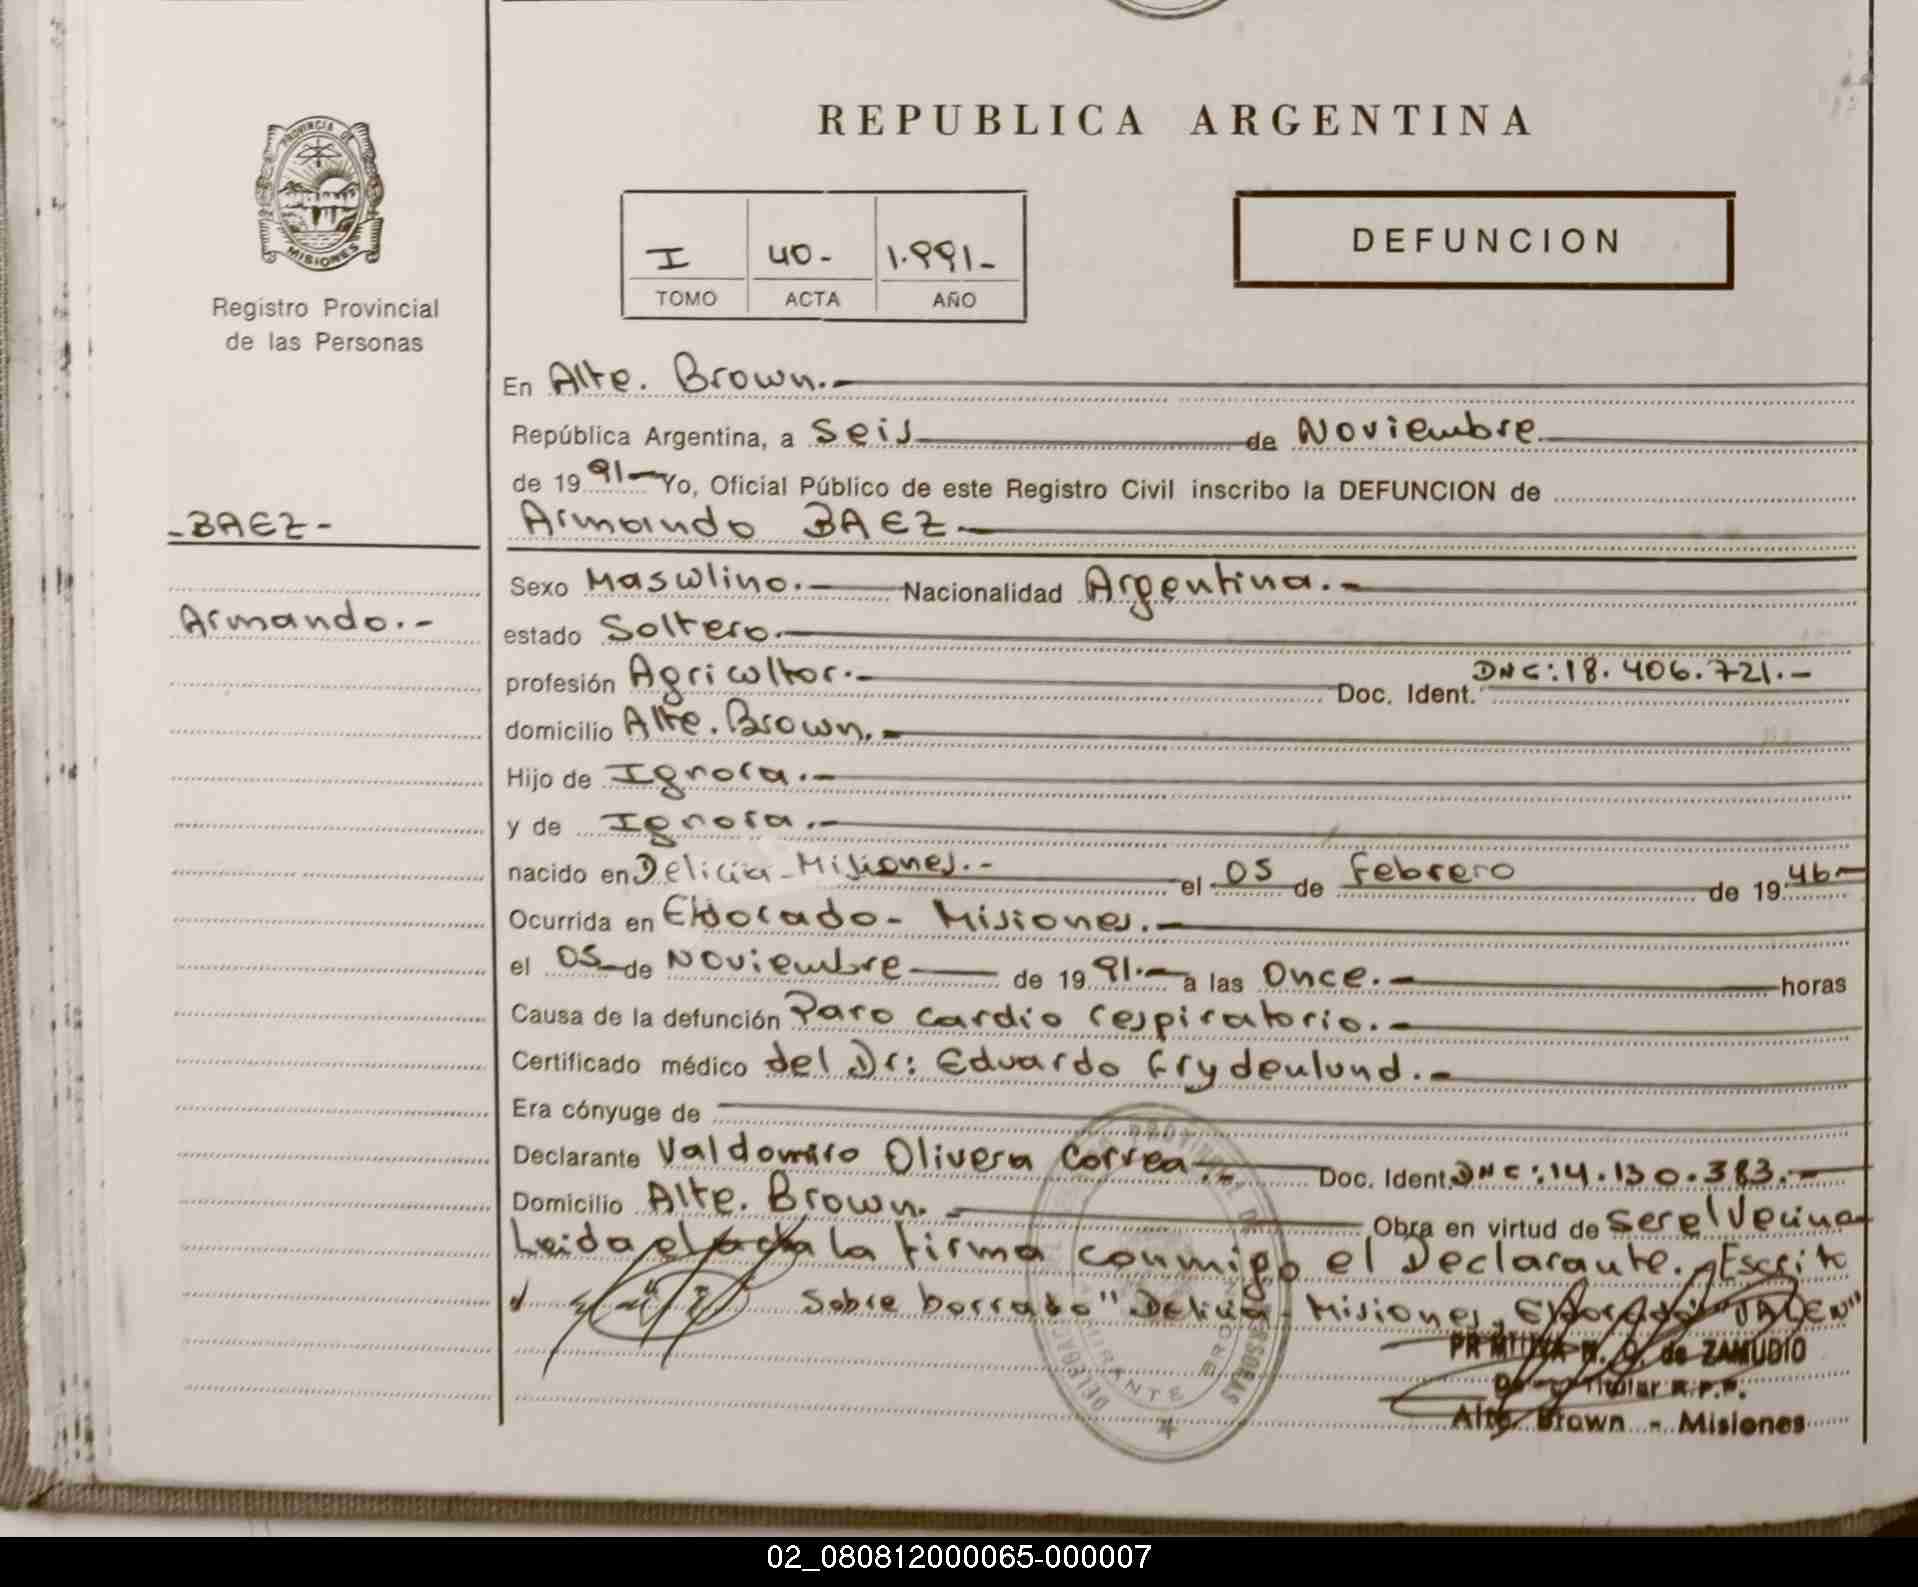 REPUBLICA ARGENTINA
PROVINCIA DE
MISIONES
Registro Provincial
de las Personas
I 40- 1.991-
TOMO ACTA AÑO
DEFUNCION
En Alte. Brown.-
República Argentina, a Seis de Noviembre
de 19 91- Yo, Oficial Público de este Registro Civil inscribo la DEFUNCION de
-BAEZ-
Armando BAEZ-
Sexo Masculino.- Nacionalidad Argentina.-
Armando.-
estado Soltero.-
profesión Agricultor.- Doc. Ident. DNE:18.406.721.-
domicilio Alte. Brown.-
Hijo de Ignora.-
y de Ignora.-
nacido en Delicia-Misiones.- el 05 de Febrero de 19 46-
Ocurrida en Eldorado- Misiones.-
el 05 de Noviembre de 19 91.- a las Once.- horas
Causa de la defunción Paro cardio respiratorio.-
Certificado médico del Dr: Eduardo Frydenlund.-
Era cónyuge de
Declarante Valdomiro Olivera Correa.- Doc. Ident. DNE:14.130.383.-
Domicilio Alte. Brown.- Obra en virtud de ser el Vecino
Leida el acta la firma conmigo el Declarante.- Escrito
Sobre borrado "Delicia-Misiones, Eldorado" "VALEN"
de ZAMUDIO
Titular R.P.P.
Alte. Brown - Misiones
02_080812000065-000007